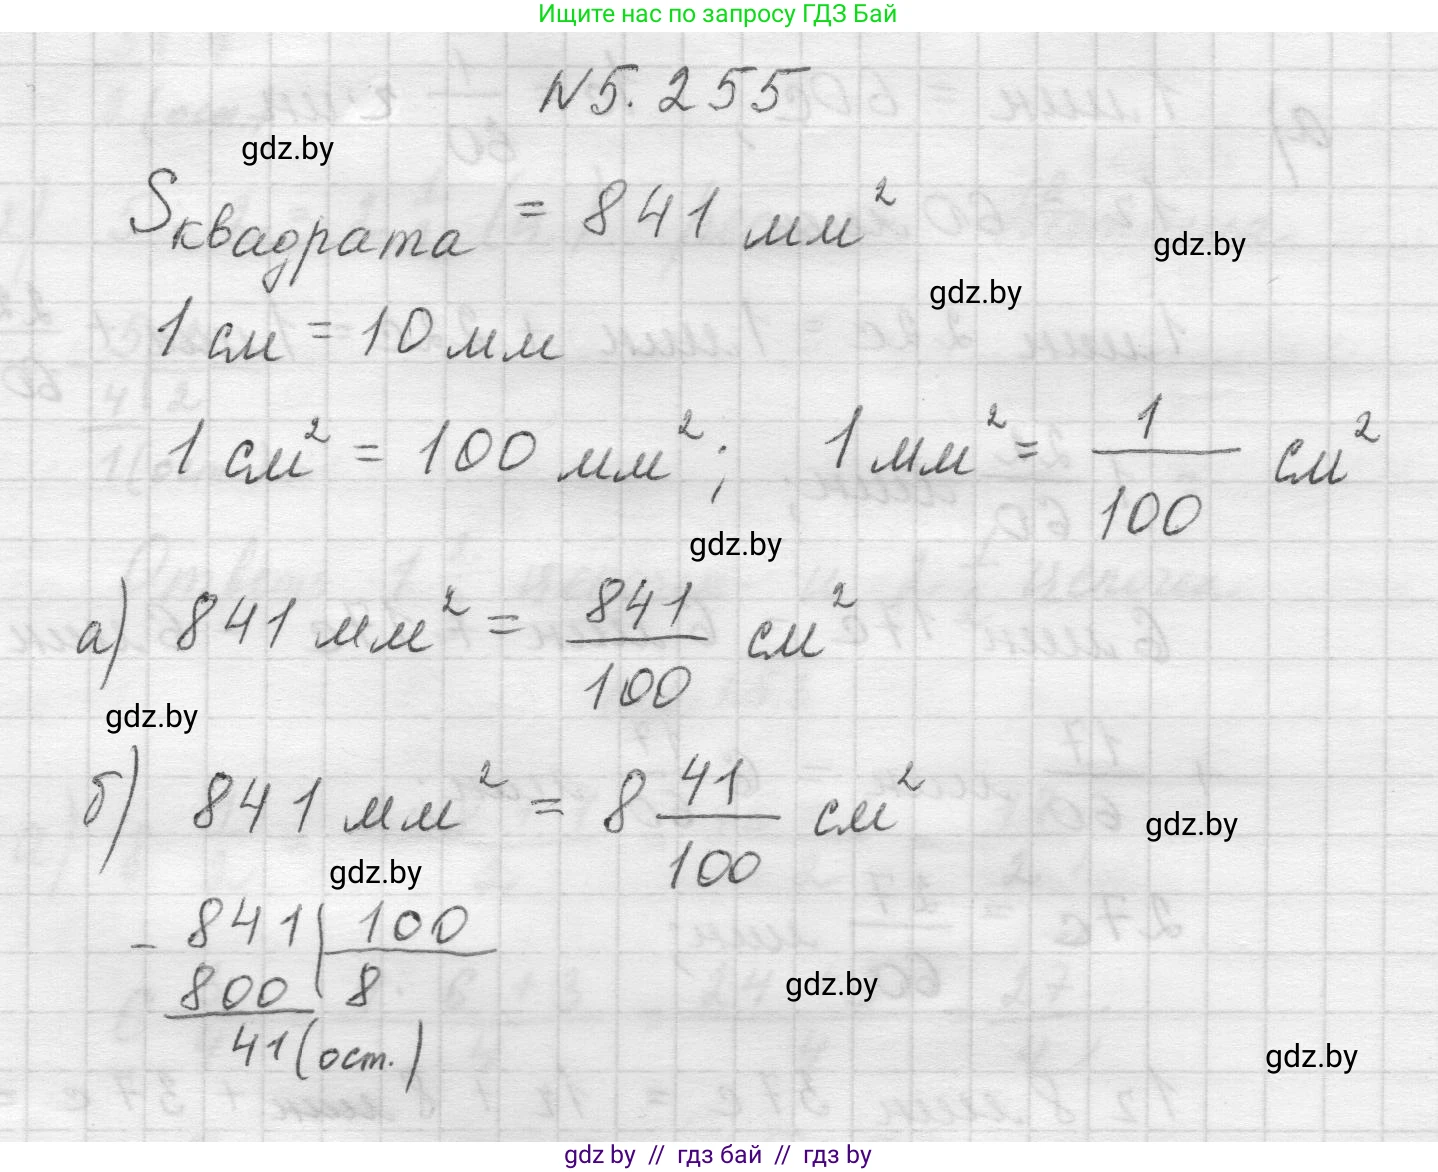 Ищите нас по запросу ГДЗ Бай
N5.255
gdz.by
Sквадрата = 841 мм²
gdz.by
gdz.by
1 см = 10 мм
1 см² = 100 мм²; 1 мм² = 1/100 см²
gdz.by
а) 841 мм² = 841/100 см²
gdz.by
б) 841 мм² = 8 41/100 см²
gdz.by
gdz.by
- 841 | 100
800 | 8
gdz.by
41 (ост.)
gdz.by
gdz by // гдз бай // гдз by